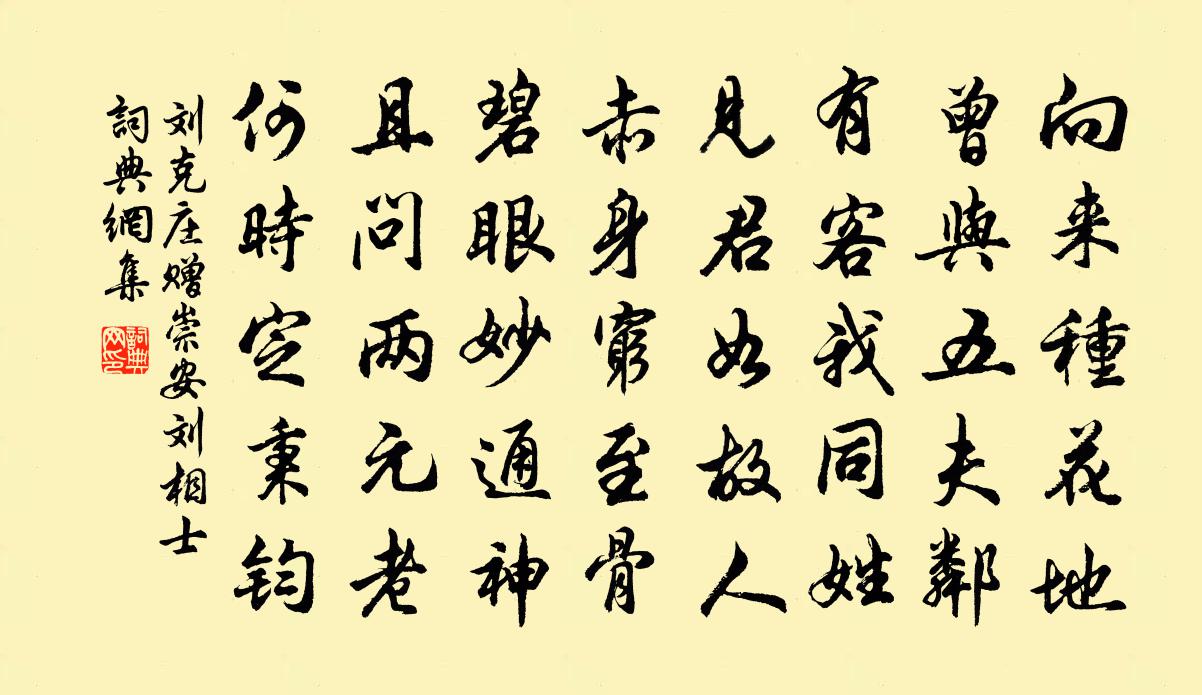 向来種花地
曾與五夫鄰
有客我同姓
見君如故人
赤身窮至骨
碧眼妙通神
且问两元老
何時定秉钧
刘克庄赠崇安刘相士
詞典網集
詞典网印